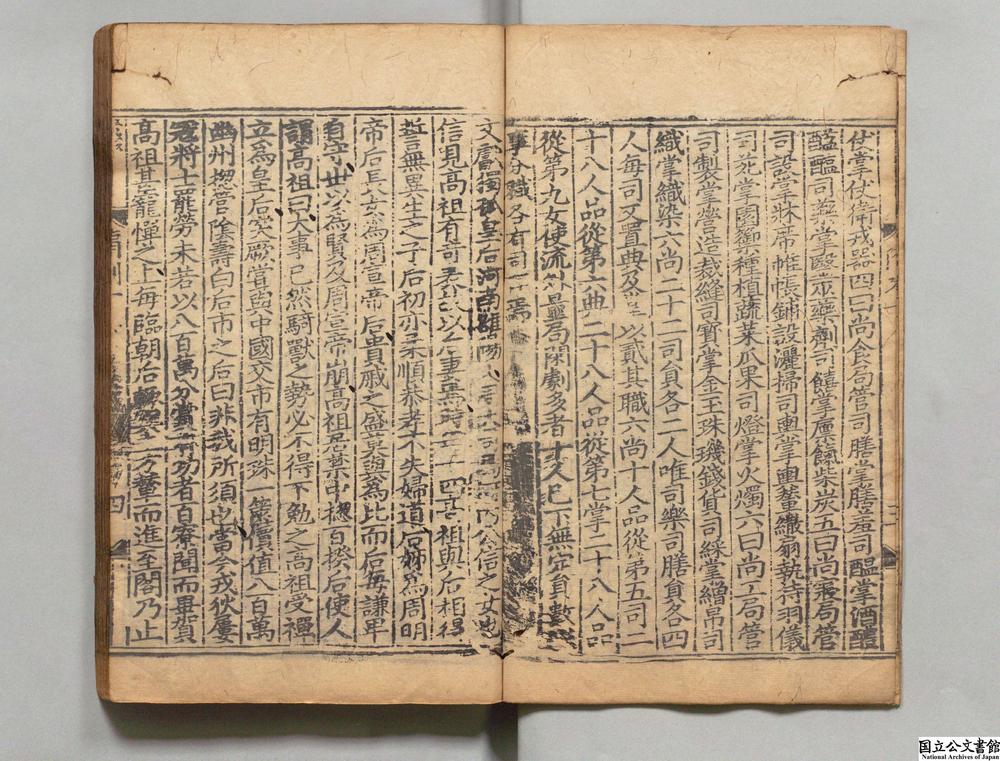 仗掌仗衛戎器四曰尚食局管司膳掌膳羞司醖掌酒醴
醯醢司藥掌醫巫藥劑司饎掌廩餼柴炭五曰尚寢局管
司設掌牀席帷帳鋪設灑掃司輿掌輿輦繖扇執持羽儀
司苑掌園籞種植蔬菜瓜果司燈掌火燭六曰尚工局管
司製掌營造裁縫司寶掌金玉珠璣錢貨司綵掌繒帛司
織掌織染六尚二十二司員各二人唯司樂司膳員各四
人每司又置典及掌以貳其職六尚十人品從第五司二
十八人品從第六典二十八人品從第七掌二十八人品
從第九女使流外量局閑劇多者十人已下無定員數
事分職各有司存焉
文獻獨孤皇后河南雒陽人周大司馬河內公信之女也
信見高祖有奇表故以后妻焉時年十四高祖與后相得
誓無異生之子后初亦柔順恭孝不失婦道后姊爲周明
帝后長女爲周宣帝后貴戚之盛莫與爲比而后每謙卑
自守世以爲賢及周宣帝崩高祖居禁中揔百揆后使人
謂高祖曰大事已然騎獸之勢必不得下勉之高祖受禪
立爲皇后突厥嘗與中國交市有明珠一篋價值八百萬
幽州揔管陰壽白后市之后曰非我所須也當今戎狄屢
寇將士罷勞未若以八百萬分賞有功者百寮聞而畢賀
高祖甚寵憚之上每臨朝后輒與上方輦而進至閤乃止
四
国立公文書館
National Archives of Japan